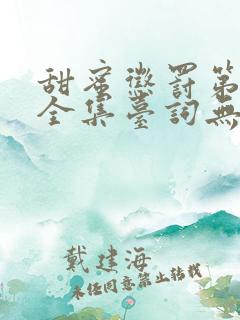 甜蜜懲罰第
全集臺詞無
戴建海
未经同意禁止转载